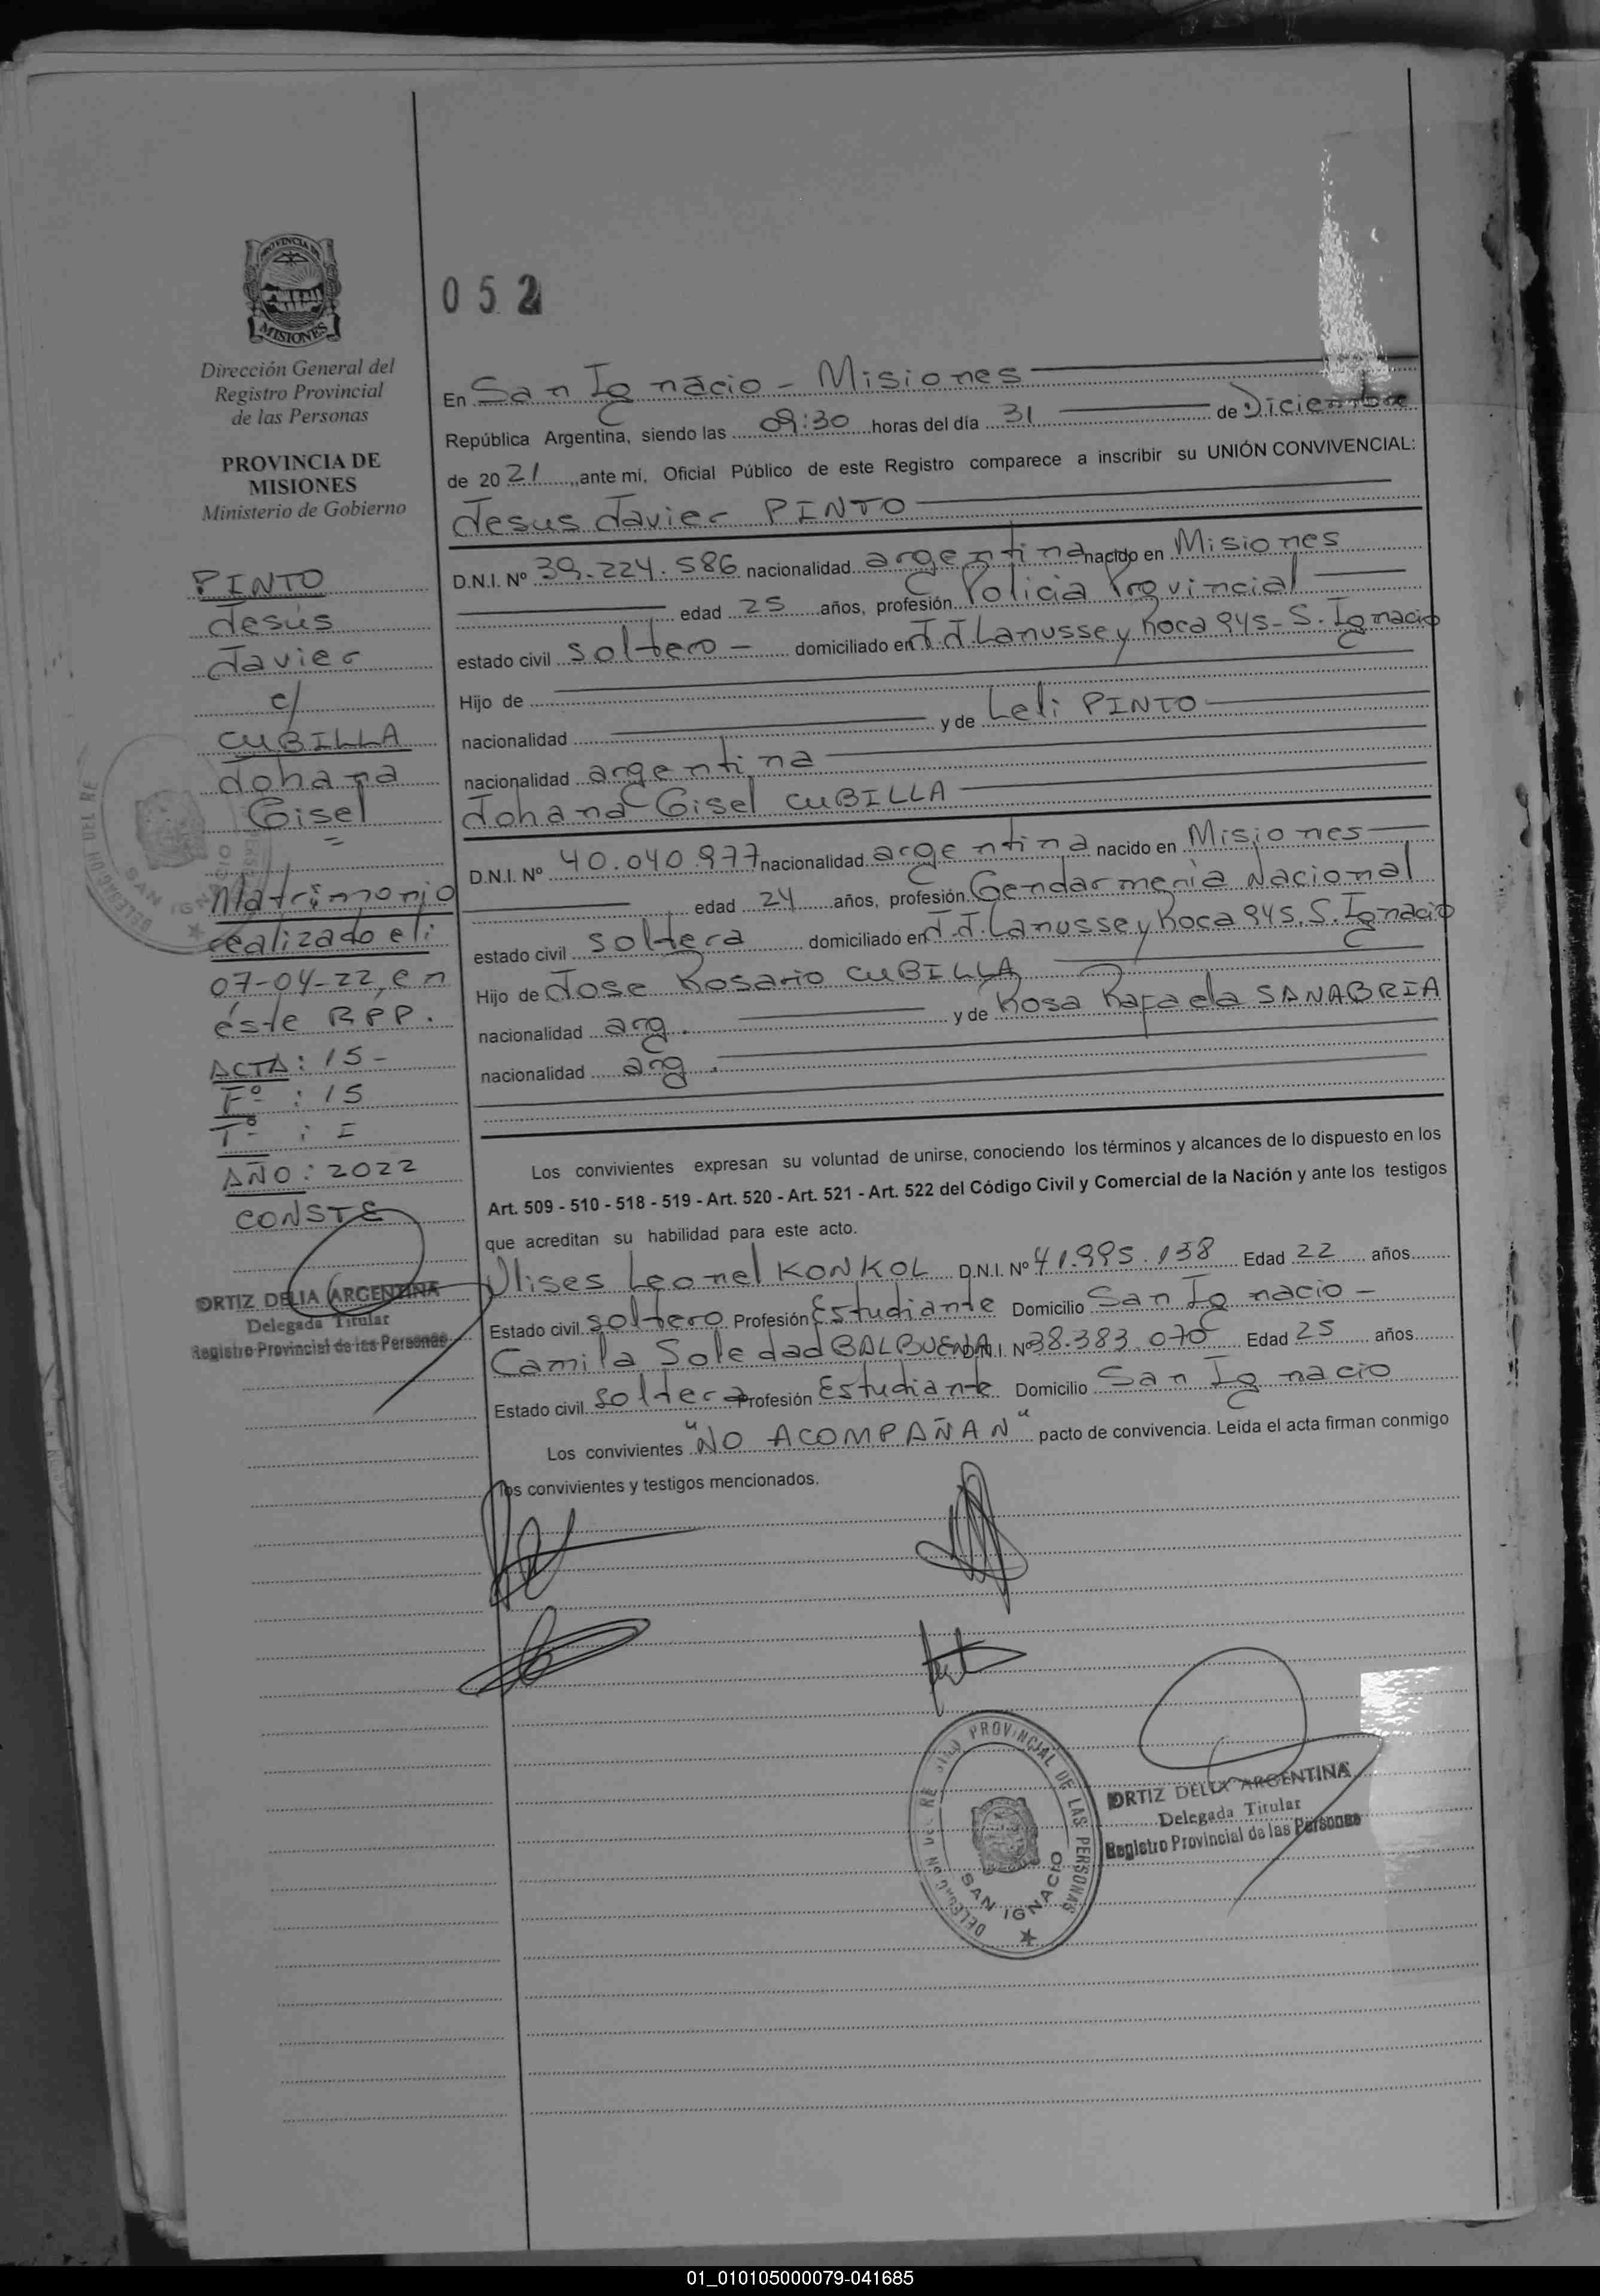 PROVINCIA DE
MISIONES
Dirección General del
Registro Provincial
de las Personas
PROVINCIA DE
MISIONES
Ministerio de Gobierno
PINTO
Jesús
Javier
c/
CUBILLA
Johana
Gisel
=
Matrimonio
realizado el:
07-04-22, en
éste RPP.
ACTA: 15-
Fº : 15
Tº : I
AÑO: 2022
CONSTE
ORTIZ DELIA ARGENTINA
Delegada Titular
Registro Provincial de las Personas
052
En San Ignacio - Misiones
República Argentina, siendo las 09:30 horas del día 31 de Diciembre
de 2021, ante mí, Oficial Público de este Registro comparece a inscribir su UNIÓN CONVIVENCIAL:
Jesus Javier PINTO
D.N.I. Nº 39.224.586 nacionalidad argentina nacido en Misiones
edad 25 años, profesión Policia Provincial
estado civil soltero - domiciliado en J.J. Lanusse y Roca 945- S. Ignacio
Hijo de
nacionalidad y de Leli PINTO
nacionalidad argentina
Johana Gisel CUBILLA
D.N.I. Nº 40.040.977 nacionalidad argentina nacido en Misiones
edad 24 años, profesión Gendarmería Nacional
estado civil soltera domiciliado en J.J. Lanusse y Roca 945, S. Ignacio
Hijo de Jose Rosario CUBILLA
nacionalidad arg. y de Rosa Rafaela SANABRIA
nacionalidad arg.
Los convivientes expresan su voluntad de unirse, conociendo los términos y alcances de lo dispuesto en los
Art. 509 - 510 - 518 - 519 - Art. 520 - Art. 521 - Art. 522 del Código Civil y Comercial de la Nación y ante los testigos
que acreditan su habilidad para este acto.
Ulises Leonel KONKOL D.N.I. Nº 41.995.138 Edad 22 años
Estado civil soltero Profesión Estudiante Domicilio San Ignacio -
Camila Soledad BALBUENA D.N.I. Nº 38.383.070 Edad 25 años
Estado civil soltera Profesión Estudiante Domicilio San Ignacio
Los convivientes "NO ACOMPAÑAN" pacto de convivencia. Leida el acta firman conmigo
los convivientes y testigos mencionados.
PROVINCIAL DE LAS PERSONAS
SAN IGNACIO
ORTIZ DELIA ARGENTINA
Delegada Titular
Registro Provincial de las Personas
01_010105000079-041685